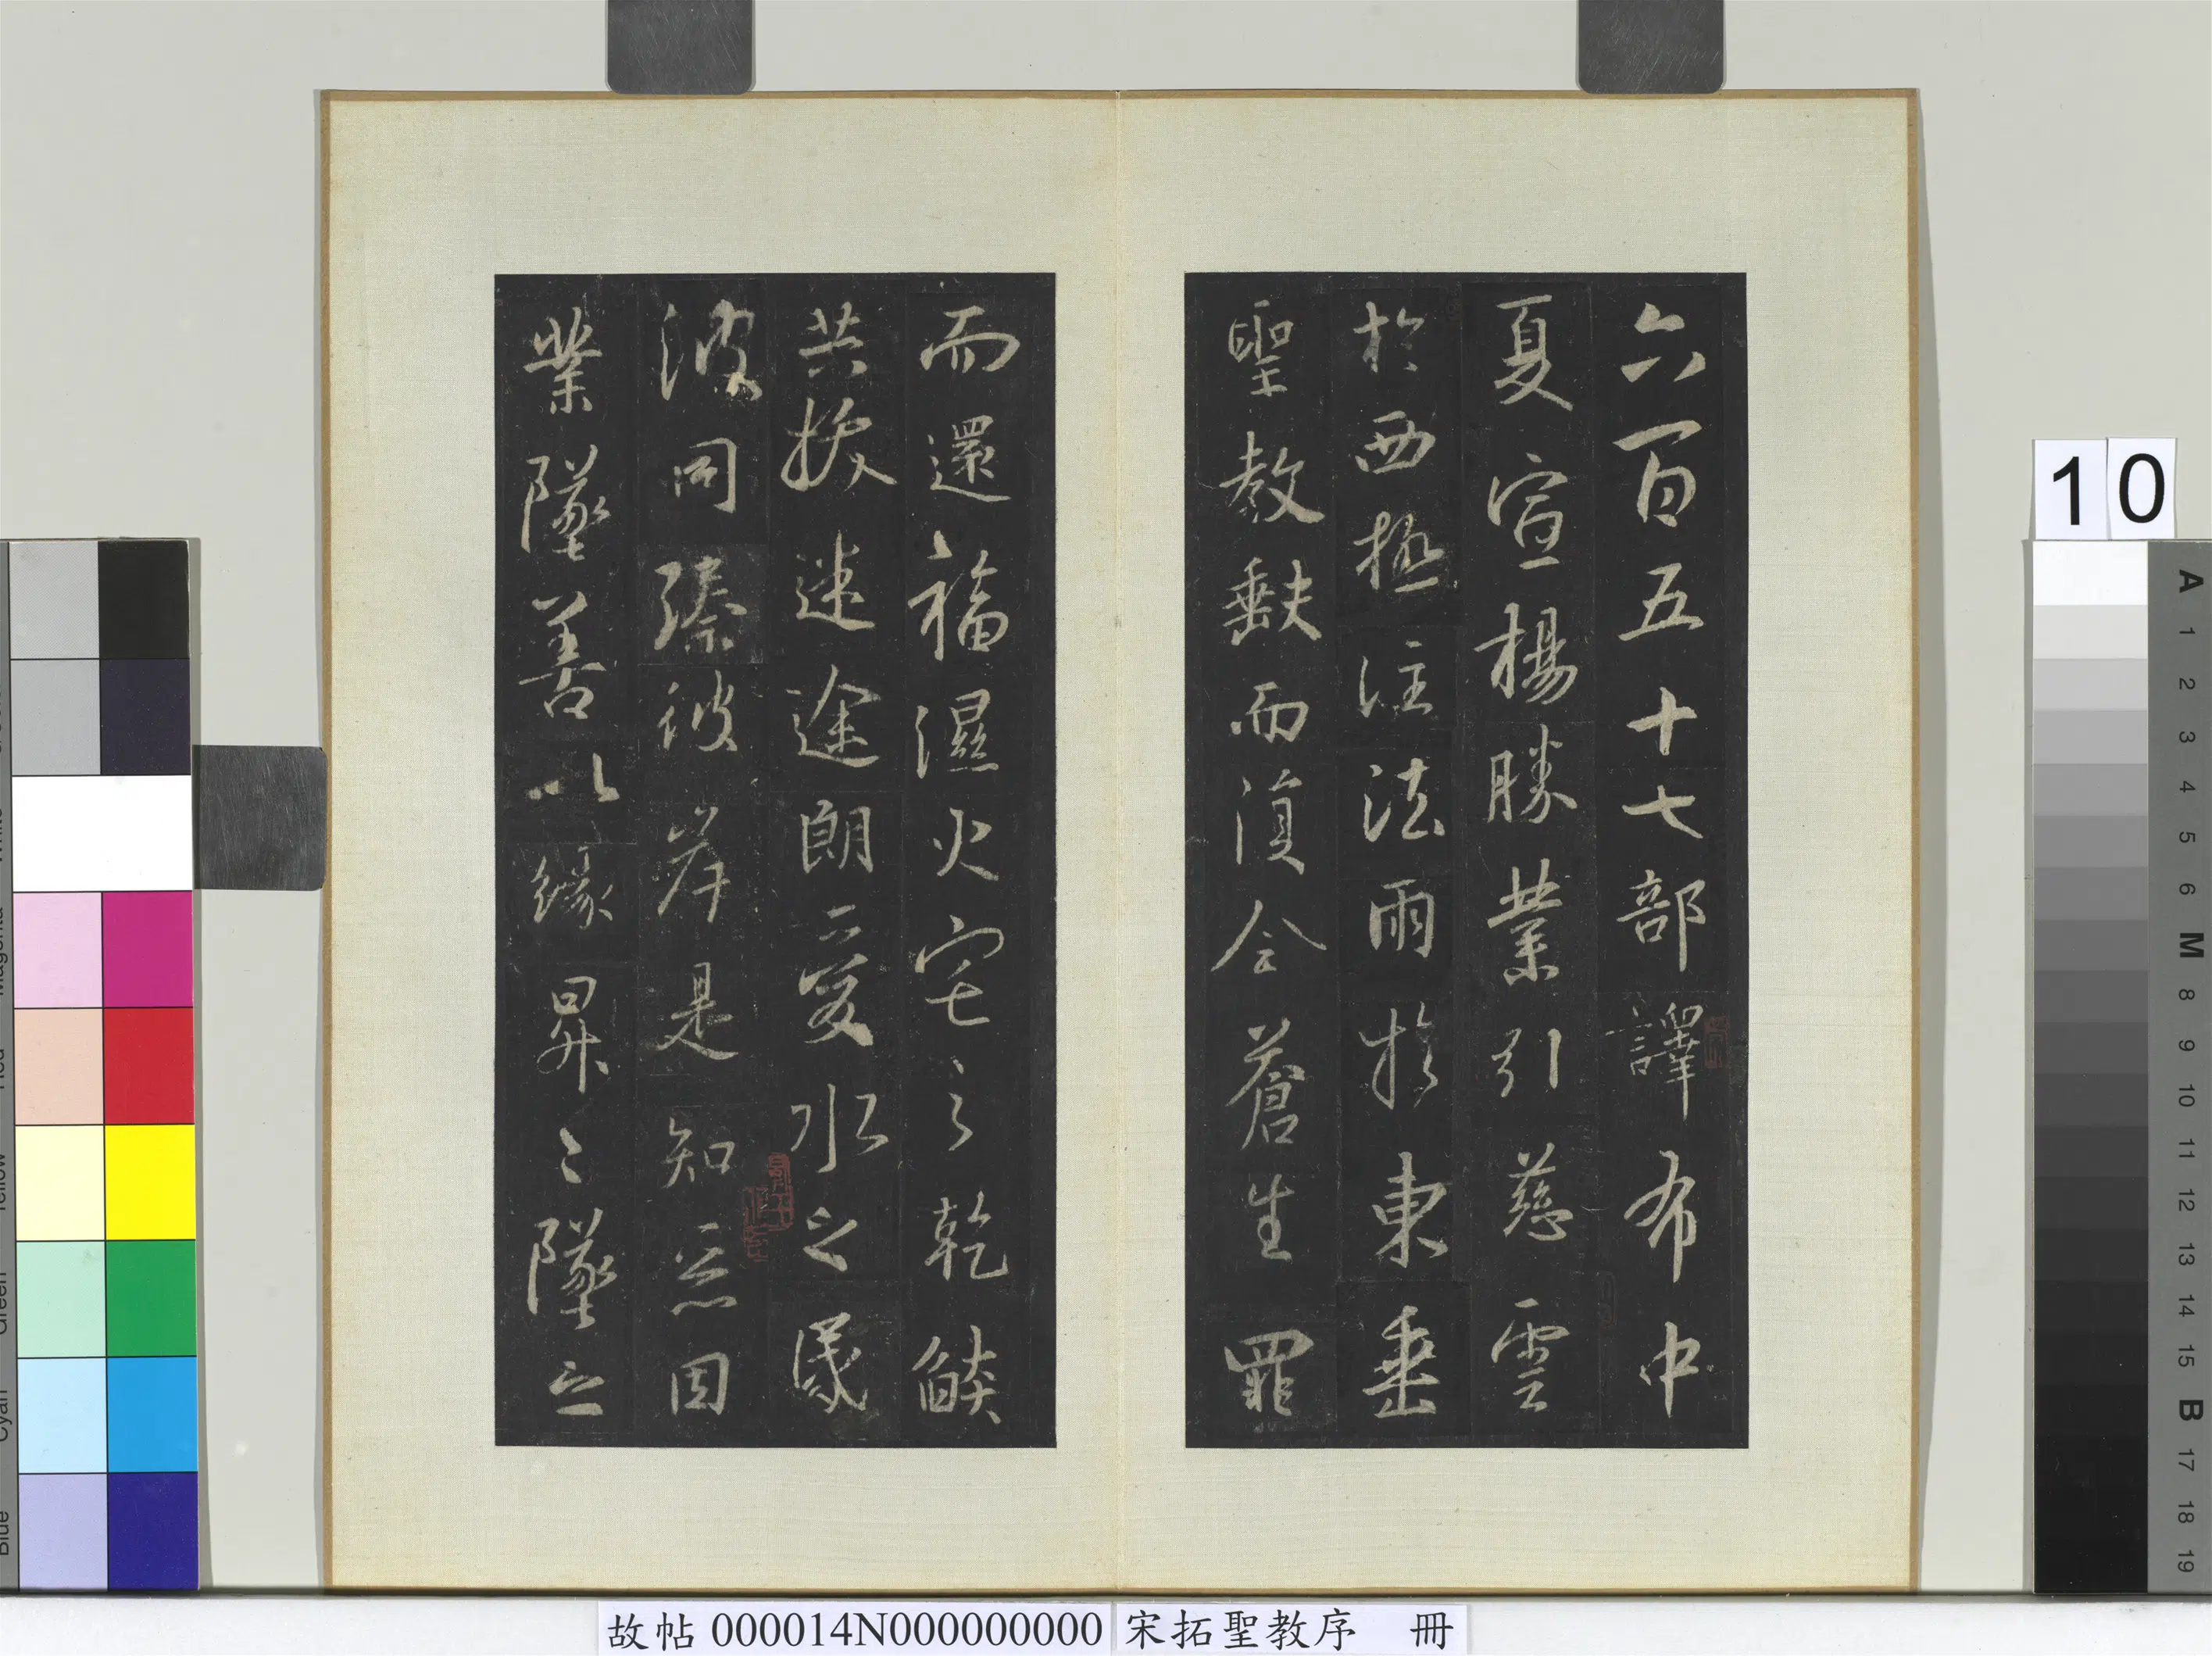 六百五十七部譯布中
夏宣揚勝業引慈雲
於西極注法雨於東垂
聖教缺而復全蒼生罪
而還福濕火宅之乾燄
共拔迷途朗愛水之昏
波同臻彼岸是知惡因
業墜善以緣昇昇墜之
10
A
1
2
3
4
5
6
M
8
9
10
11
12
13
14
15
B
17
18
19
故帖 000014N000000000 宋拓聖教序 冊